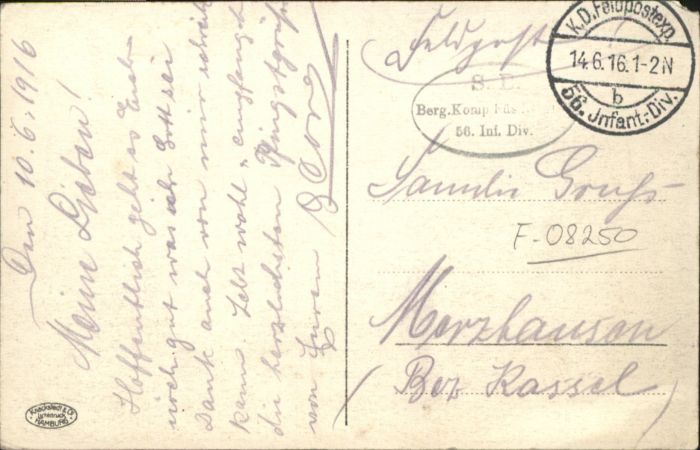 Den 10.6.1916
Meine Lieben!
Hoffentlich geht es Euch
noch gut was ich Gott sei
Dank auch von mir schreiben
kann. Lebt wohl u. empfangt
die herzlichsten Pfingstgrüße
von Eurem
Feldpost
K.D.Feldpostexp.
14.6.16.1-2N
b
56. Infant.-Div.
S. B.
Berg. Komp
56. Inf. Div.
Familie
F-08250
Merzhausen
(Bez Kassel)
Knackstedt & Co
Lichtdruck
HAMBURG